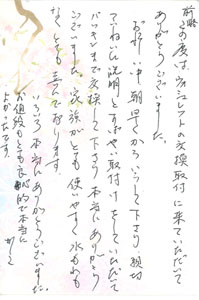 前略
この度は、ウォシュレットの交換取付に来ていただいて
ありがとうございました。
お忙い中朝早くからいらして下さり、親切
ていねいに説明とすばやい取付けをしていただいて
パッキンまで交換して下さり本当にありがとう
ございました。家族がとても使いやすく水もれも
なくとても喜んでおります。
いろいろ本当にありがとうございました。
お値段もとても良心的で本当に
よかったです。
かしこ